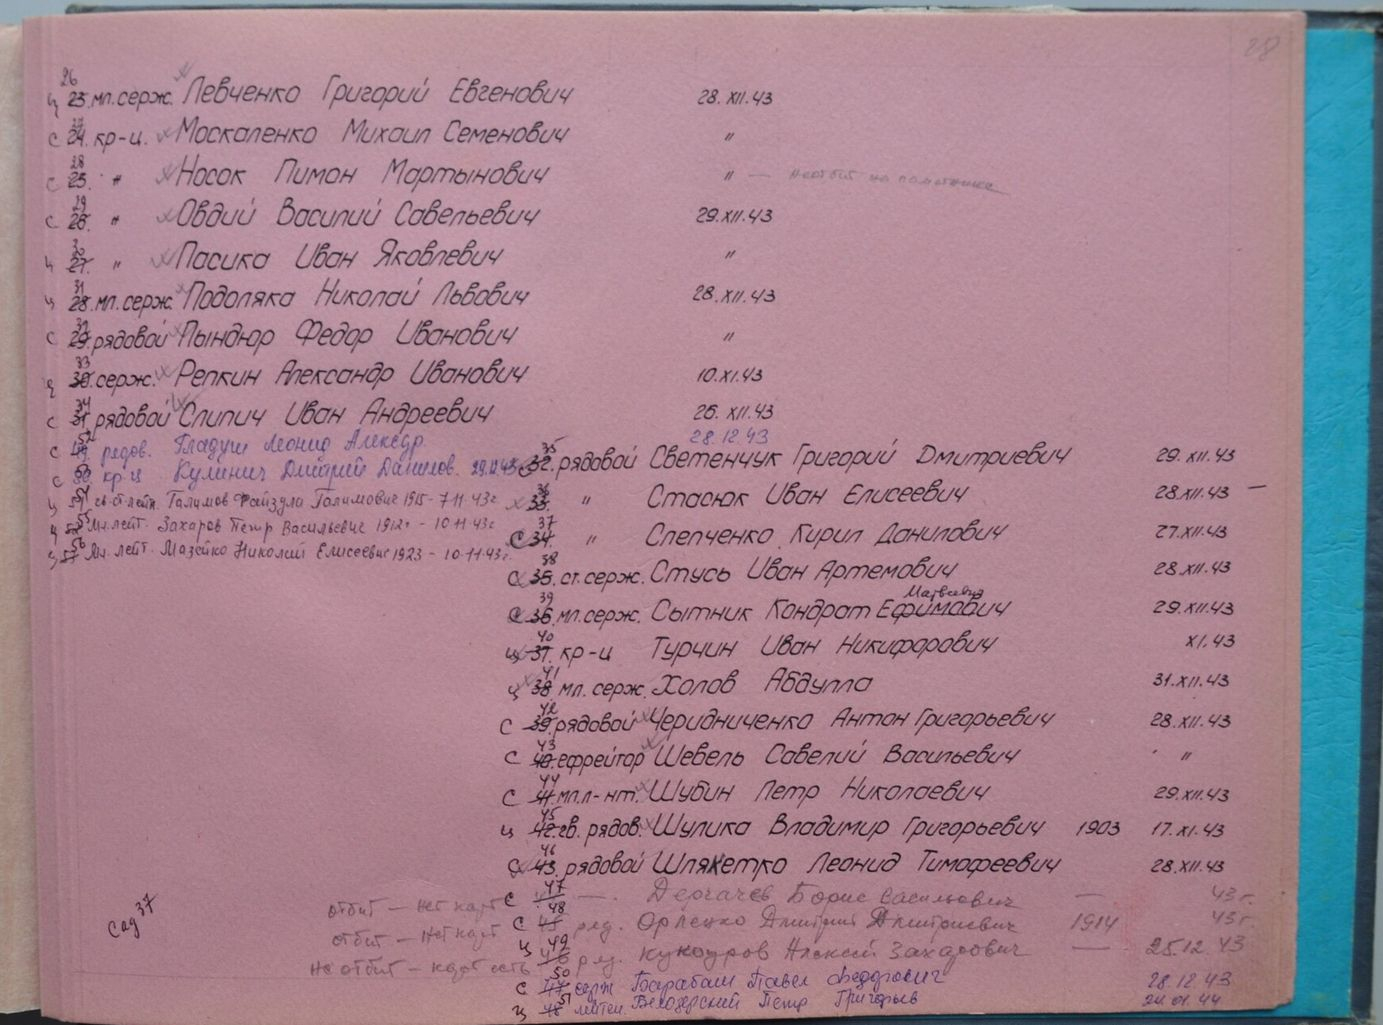 28
26
ц 23. мл. серж. Левченко Григорий Евгенович 28.XII.43
27
с 24. кр-ц. Москаленко Михаил Семенович "
28
с 25. " Носок Пимон Мартынович " — не отбит на памятнике
29
с 26. " Овдий Василий Савельевич 29.XII.43
30
ц 27. " Пасика Иван Яковлевич "
31
ц 28. мл. серж. Подоляка Николай Львович 28.XII.43
32
с 29. рядовой Пындюр Федор Иванович "
33
ц 30. серж. Репкин Александр Иванович 10.XI.43
34
с 31. рядовой Слипич Иван Андреевич 26.XII.43
52
с 49 рядов. Гладуш Леонид Алексдр. 28.12.43
53
с 50 кр-ц Кулинич Дмитрий Данилов. 29.12.43
54
ц гв. ст. лейт. Галимов Файзула Галимович 1915 - 7.11.43г
55
ц 52 Мл. лейт. Захаров Петр Васильевич 1912г - 10.11.43г
56
ц 53 Мл. лейт. Мазейко Николай Елисеевич 1923 - 10.11.43г.
35
с 32. рядовой Светенчук Григорий Дмитриевич 29.XII.43
36
33. " Стасюк Иван Елисеевич 28.XII.43 —
37
с 34. " Слепченко Кирил Данилович 27.XII.43
38
с 35. ст. серж. Стусь Иван Артемович 28.XII.43
39 Матвеевич
с 36. мл. серж. Сытник Кондрат Ефимович 29.XII.43
40
ц 37. кр-ц Турчин Иван Никифорович XI.43
41
ц 38 мл. серж. Холов Абдулла 31.XII.43
42
с 39. рядовой Черидниченко Антон Григорьевич 28.XII.43
43
с 40. ефрейтор Шевель Савелий Васильевич "
44
с 41. мл. л-нт. Шубин Петр Николаевич 29.XII.43
45
ц 42. гв. рядов. Шулика Владимир Григорьевич 1903 17.XI.43
46
с 43. рядовой Шпякетко Леонид Тимофеевич 28.XII.43
47
отбит — нет карт с — Дергачев Борис Васильович — 43г.
48
отбит — нет карт с 45 ряд. Орлецко Дмитрий Дмитриевич 1914 43г
49
не отбит — карт есть ц 46 ряд. Алексей Захарович — 25.12.43
50
с 47 серж Барабаш Павел Федорович 28.12.43
51
ц 48 лейтен. Белозерский Петр Григорьев 24.01.44
Сад 37